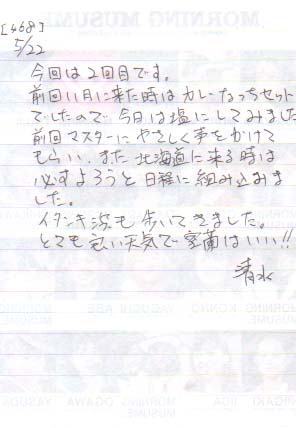 [468]
5/22
今回は2回目です。
前回11月に来た時はカレーなっちセット
でしたので今日は塩にしてみました
前回マスターにやさしく声をかけて
もらい、また北海道に来る時は
必ずよろうと日程に組み込みま
した。
イタンキ浜も歩いてきました。
とても良い天気で室蘭はいい!!
清水
MORNING MUSUME
KONNO
YAGUCHI
ABE
MORNING MUSUME
NIIGAKI
IIDA
MORNING MUSUME
OGAWA
YASUDA